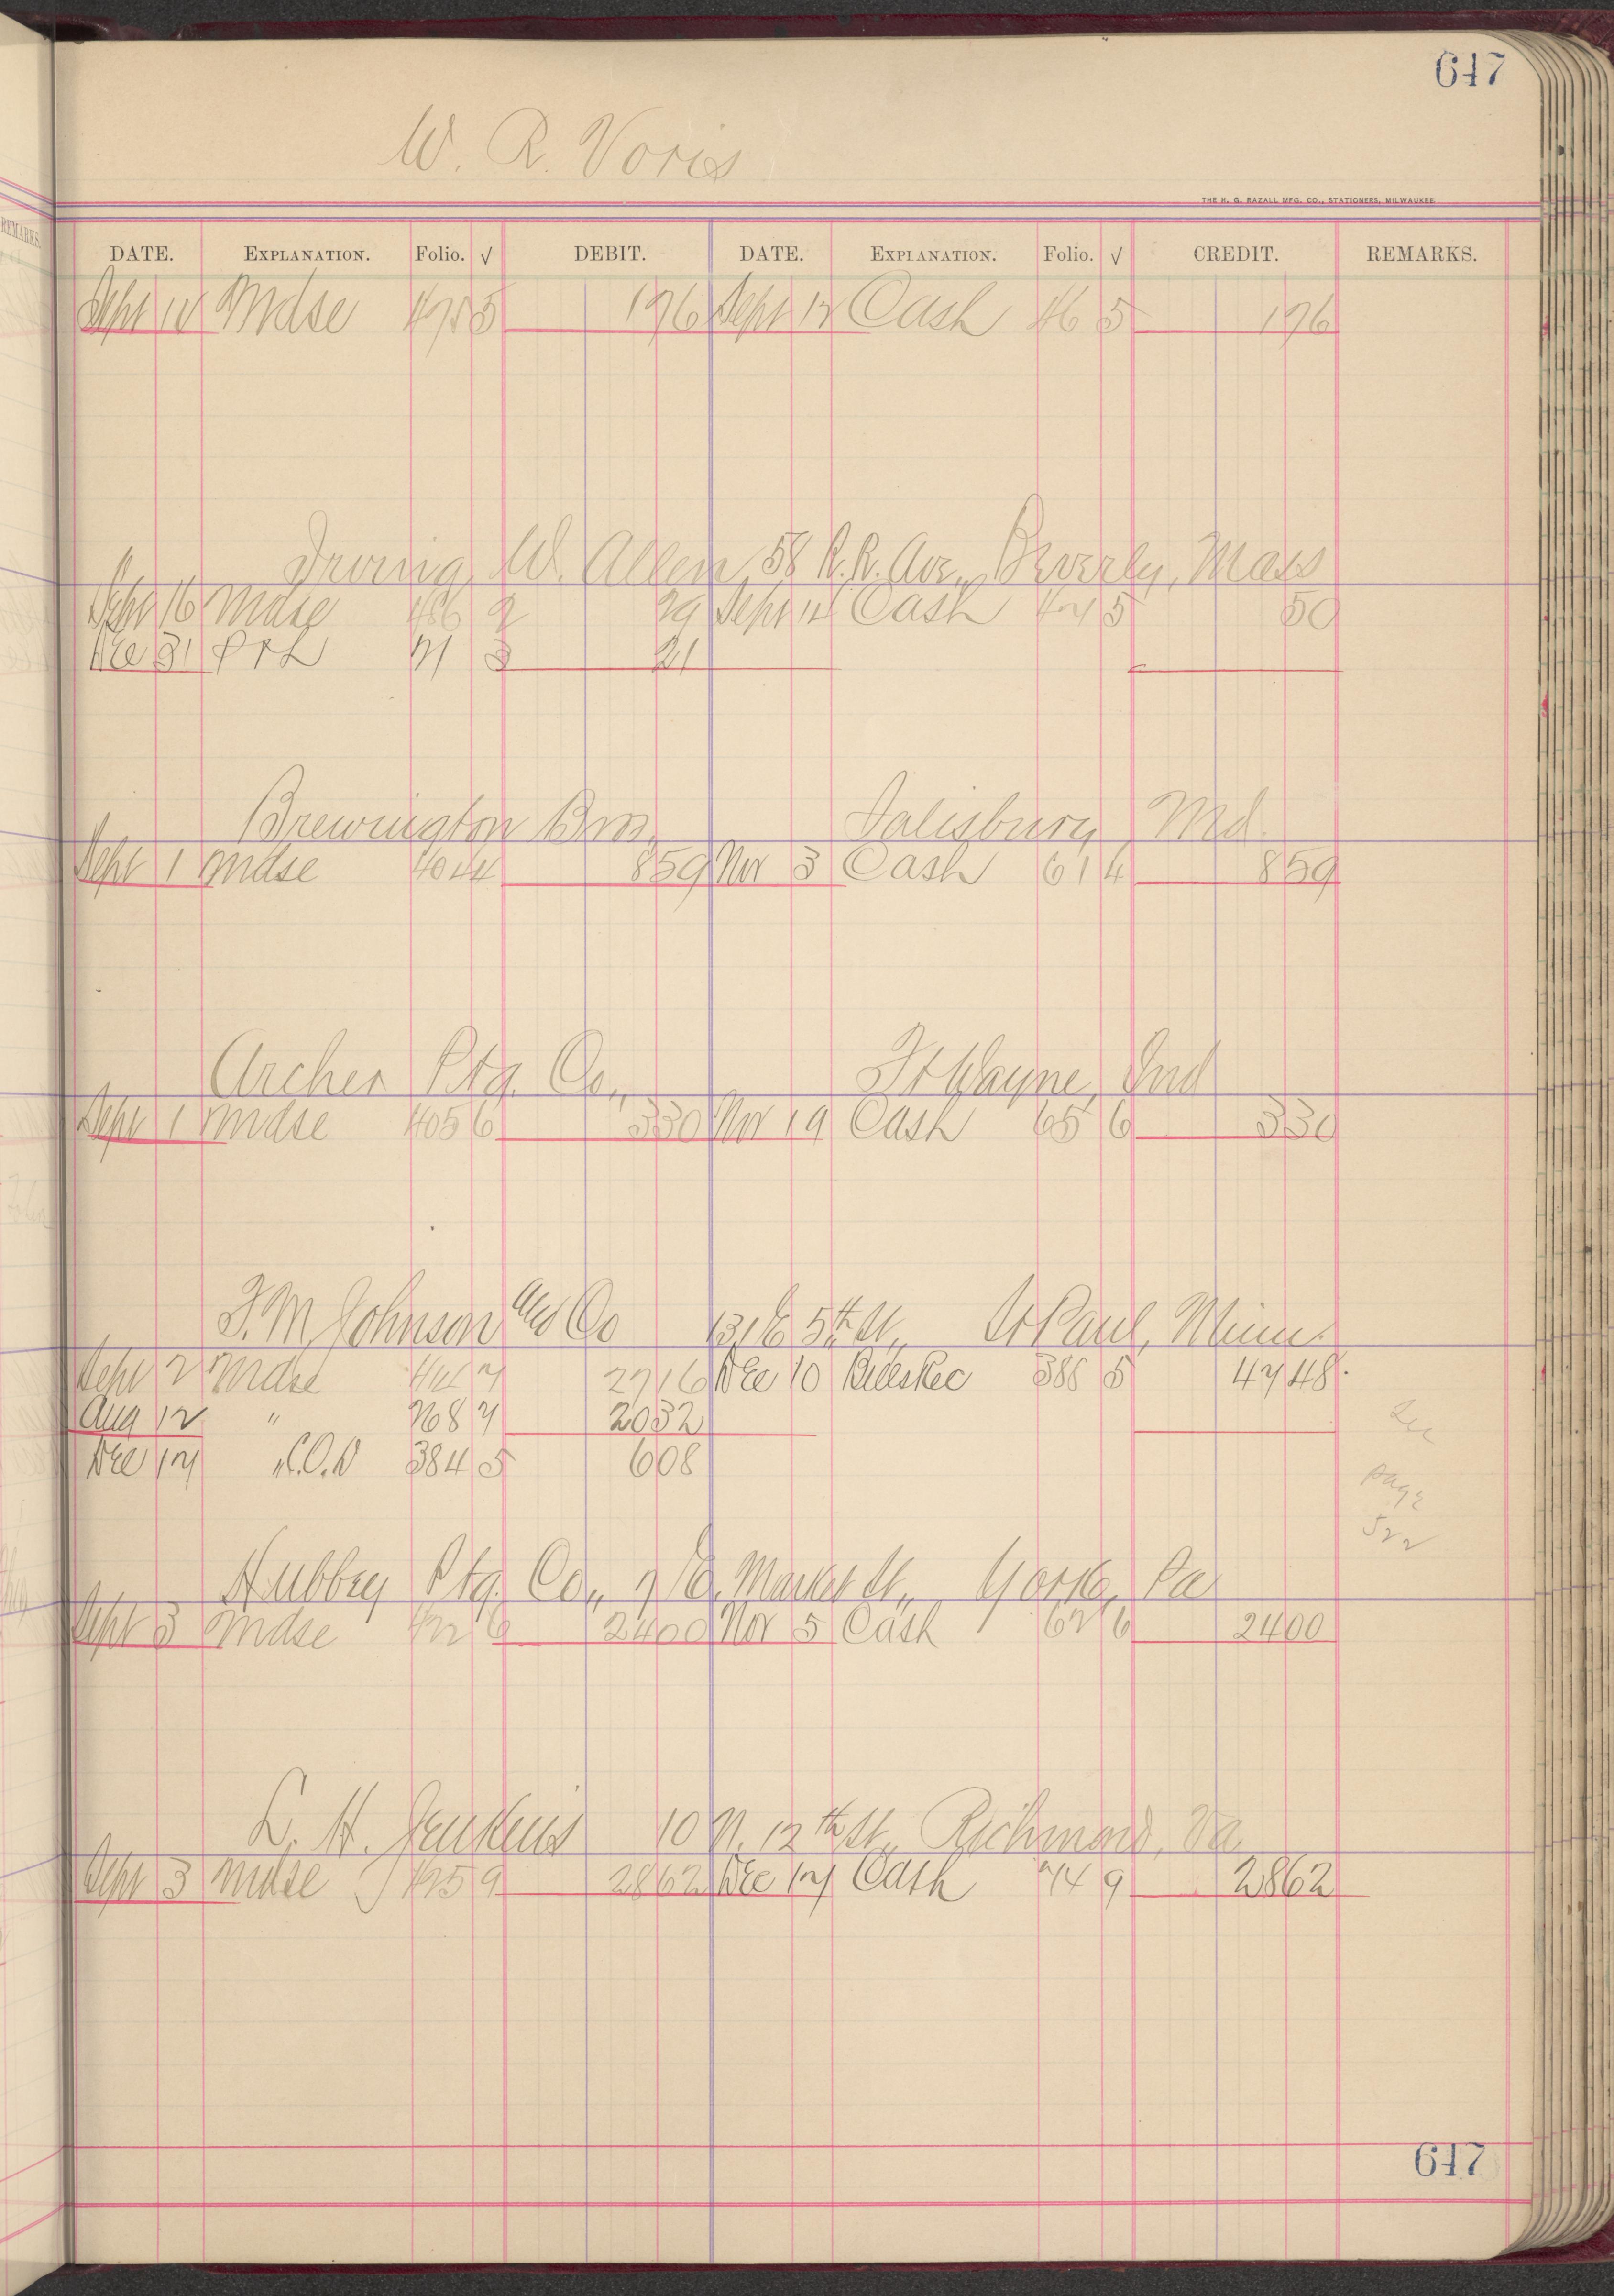 647
W. R. Voris
THE H. G. RAZALL MFG. CO., STATIONERS, MILWAUKEE
DATE. EXPLANATION. Folio. √ DEBIT. DATE. EXPLANATION. Folio. √ CREDIT. REMARKS.
Sept Mdse 5 196 Sept 12 Cash 46 5 196
Irving W. Allen, 58 R.R. Ave., Beverly, Mass
Sept 16 Mdse 486 2 29 Sept Cash 5 50
Dec 31 P & L 71 3 21
Brewington Bros. Salisbury Md.
Sept 1 Mdse 404 4 859 Nov 3 Cash 61 4 859
Archer Ptg. Co., Ft Wayne, Ind
Sept 1 Mdse 405 6 330 Nov 19 Cash 65 6 330
F. M. Johnson Co 131 E 5th St., St Paul, Minn.
Sept 2 Mdse 7 2716 Dec 10 Bills Rec 386 5 4748
Aug 12 " 268 7 2032
Dec 17 " C.O.D 384 5 608
See
page
522
Hubbey Ptg. Co., 7 E. Market St., York, Pa
Sept 3 Mdse 422 6 2400 Nov 5 Cash 62 6 2400
L. H. Jenkins 10 N. 12th St., Richmond, Va
Sept 3 Mdse 425 9 2862 Dec 17 Cash 74 9 2862
647